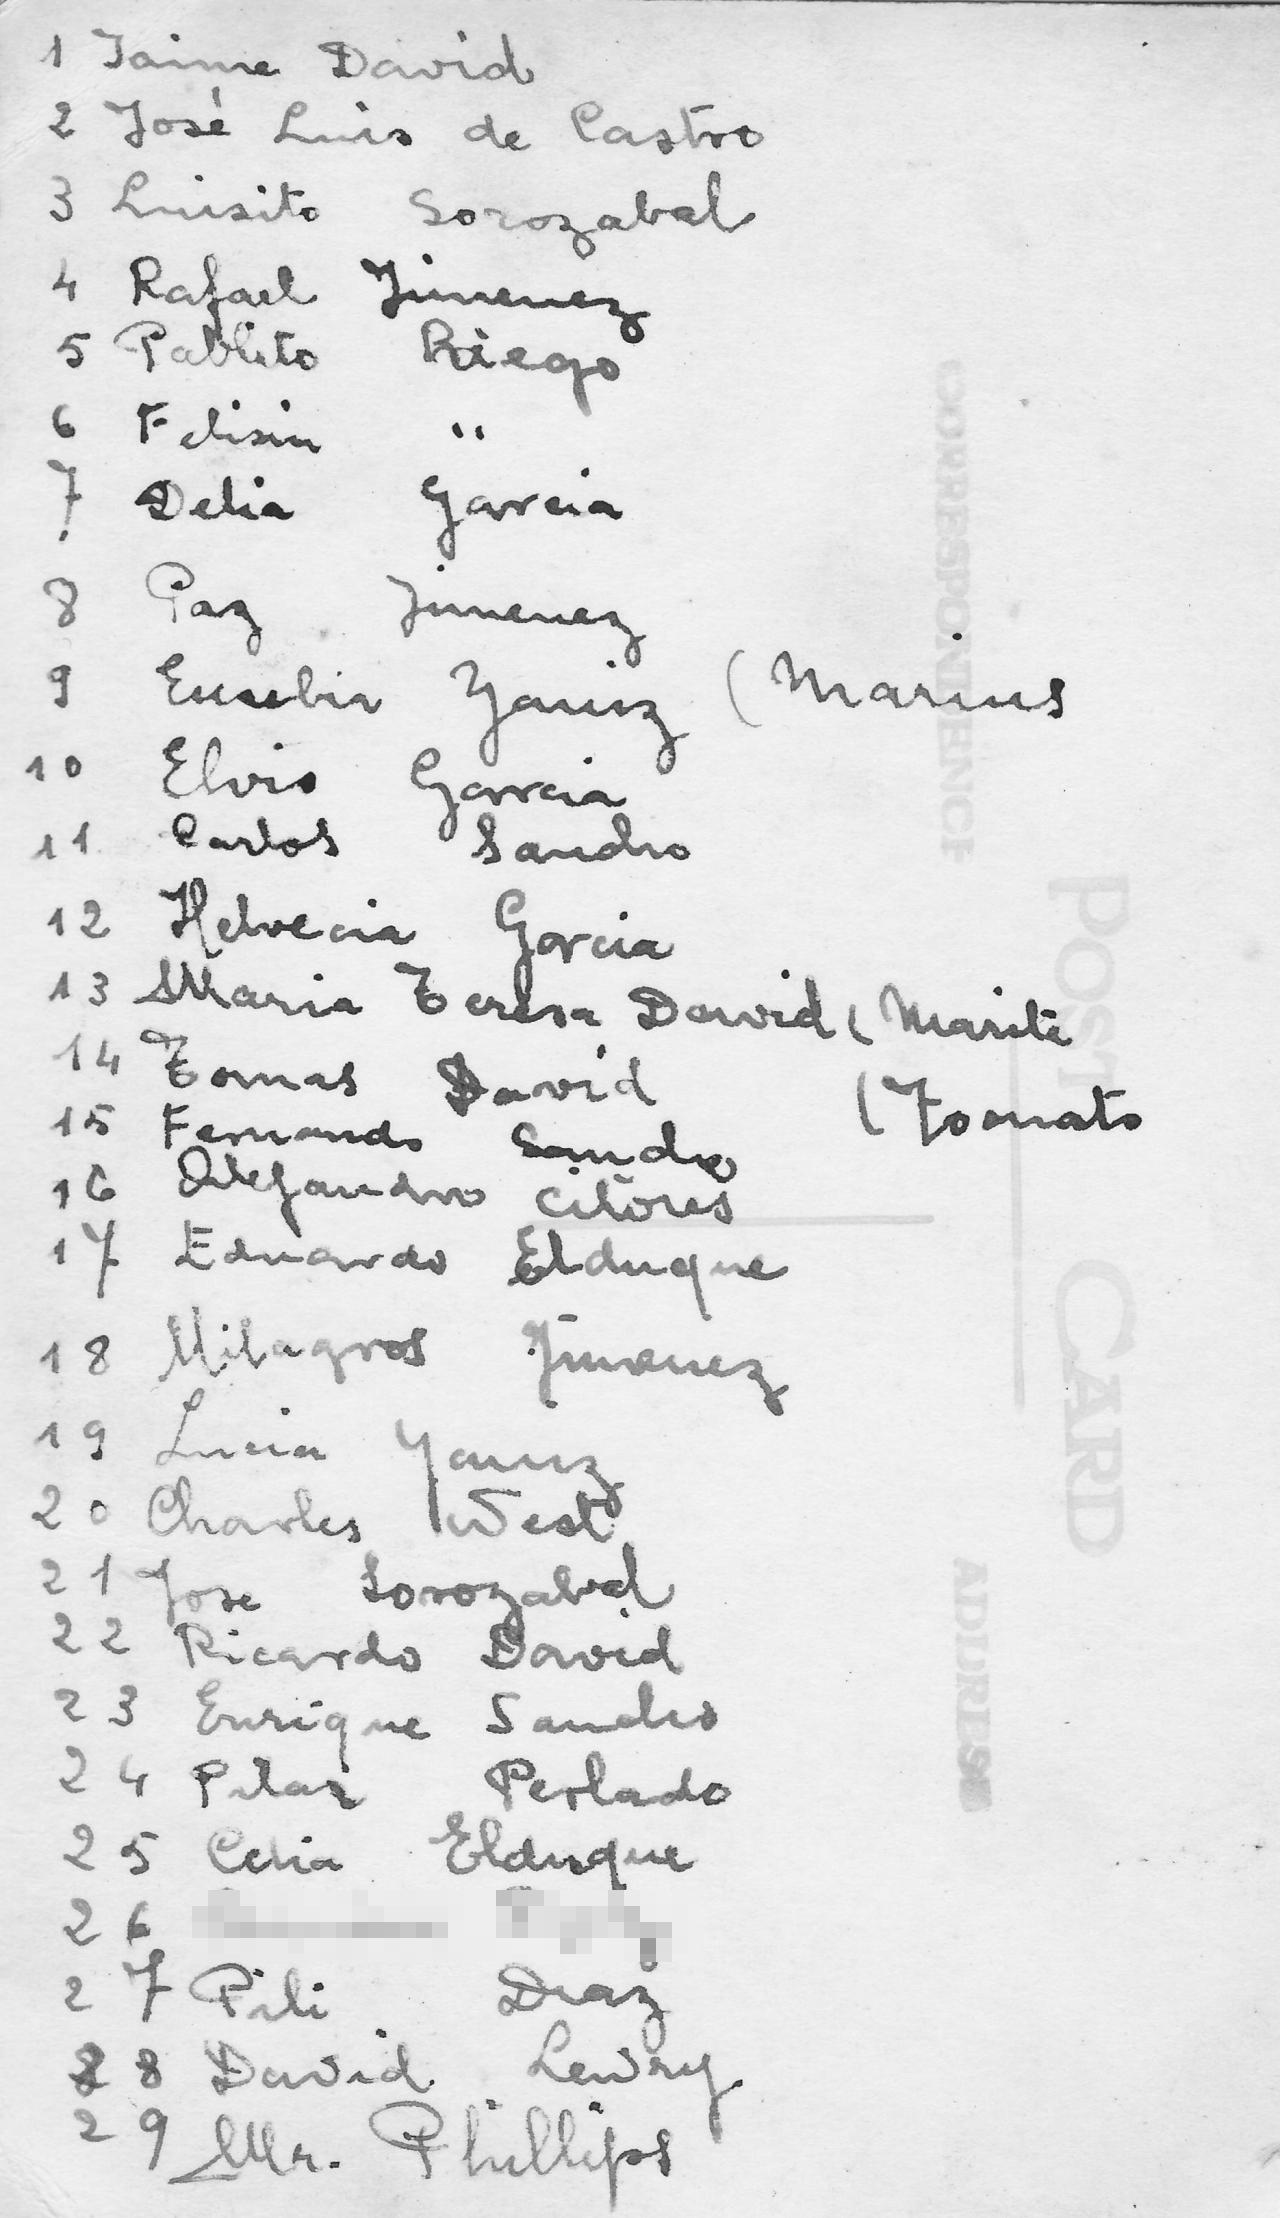 1 Jaime David
2 José Luis de Castro
3 Luisito Sorozabal
4 Rafael Jimenez
5 Pablito Riego
6 Felisin "
7 Delia Garcia
8 Paz Jimenez
9 Eusebia Yaniz (Marius
10 Elvio Garcia
11 Carlos Sandro
12 Helvecia Garcia
13 Maria Teresa David (Marité
14 Tomas David (Tomato
15 Fernando Sandro
16 Alejandro Citores
17 Eduardo Elduque
18 Milagros Jimenez
19 Lucia Yaniz
20 Charles West
21 Jose Sorozabal
22 Ricardo David
23 Enrique Sandro
24 Pilar Perlado
25 Celia Elduque
26
27 Pili Diaz
28 David Lewry
29 Mr. Phillips
CORRESPONDENCE
POST CARD